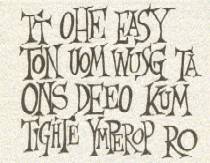 TI OHE EASY
TON UOM WUSG TA
ONS DEEO KUM
TIGHTE YMPEROP RO